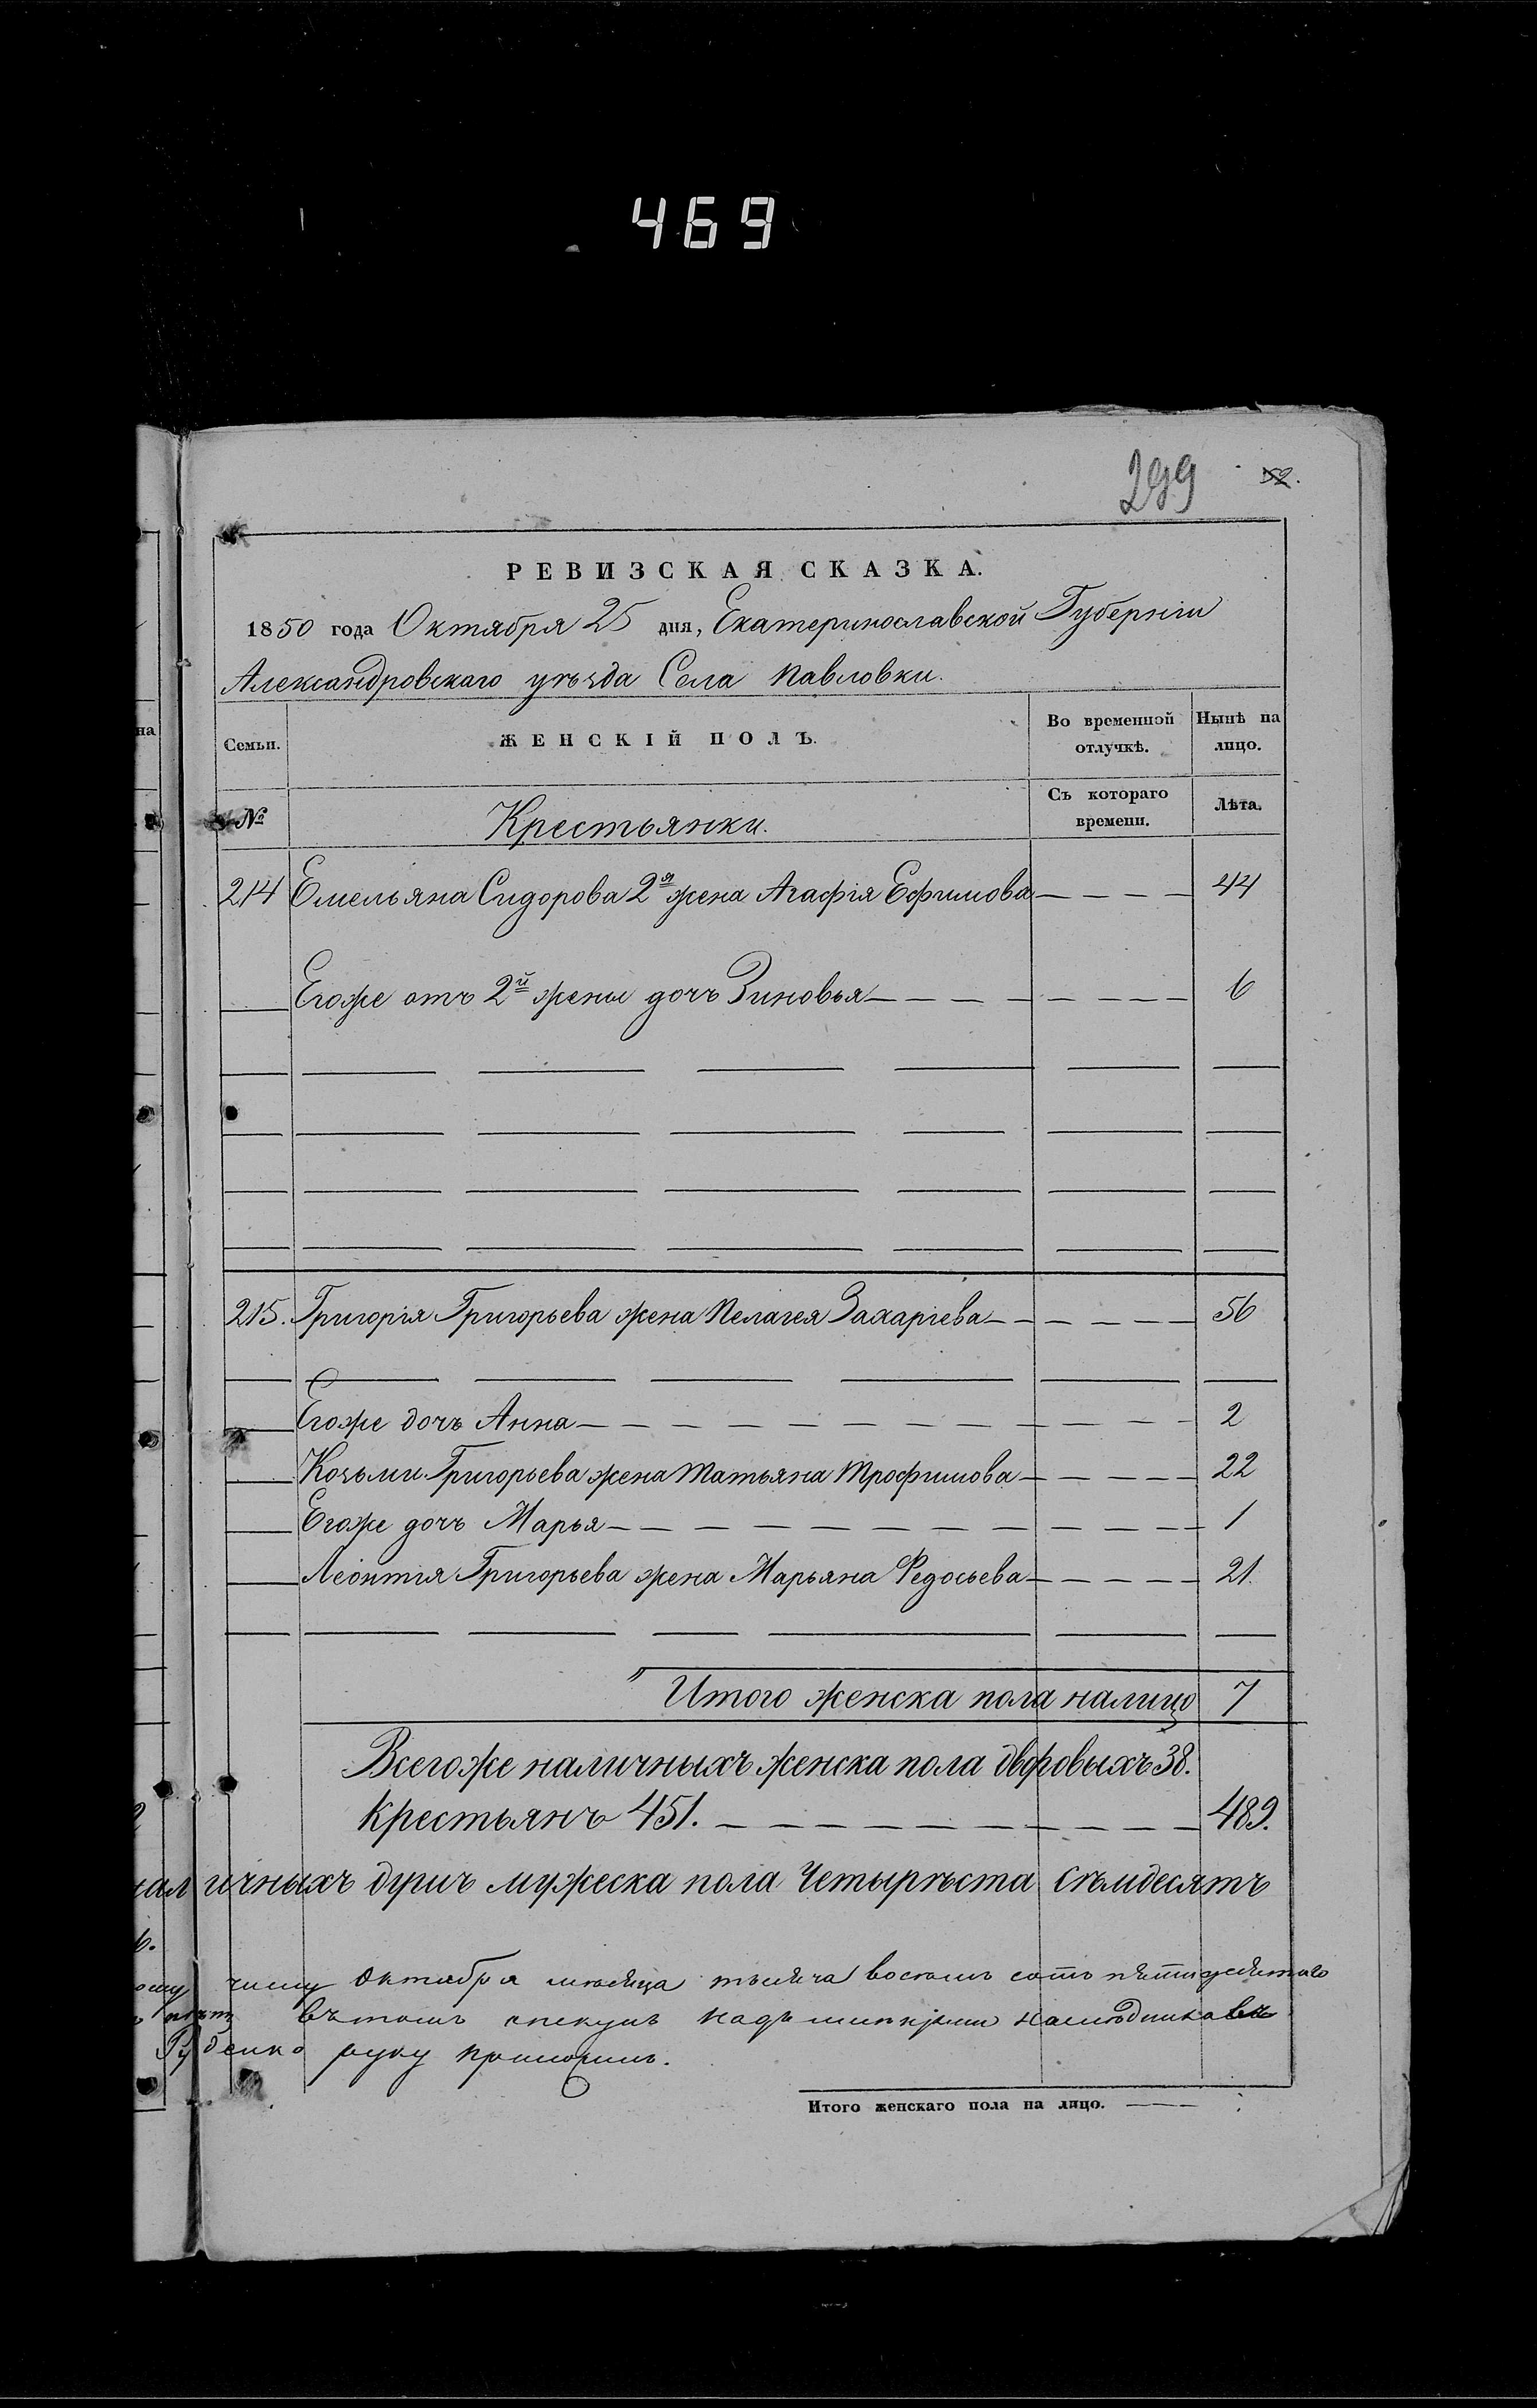 469
299 52.
РЕВИЗСКАЯ СКАЗКА.
1850 года Октября 25 дня, Екатеринославской Губерніи
Александровскаго уѣзда Села Павловки.
Семьи.
ЖЕНСКІЙ ПОЛЪ.
Во временной отлучкѣ.
Нынѣ на лицо.
№
Крестьянки.
Съ котораго времени.
Лѣта.
214 Емельяна Сидорова 2я жена Агафія Ефимова 44
Егоже отъ 2й жены дочъ Зиновья 6
215. Григорія Григорьева жена Пелагея Захаріева 56
Егоже дочъ Анна 2
Козьми Григорьева жена Татьяна Трофимова 22
Егоже дочъ Марья 1
Леонтія Григорьева жена Марьяна Федосьева 21.
Итого женска пола налицо 7
Всегоже наличныхъ женска пола дворовыхъ 38.
Крестьянъ 451. 489.
наличныхъ душъ мужеска пола Четыреста Семдесятъ
числу Октября месяца тысяча восемь сотъ пятидесятаго
въ томъ опекунъ надъ наследникавъ
Рубенко руку приложилъ.
Итого женскаго пола на лицо.